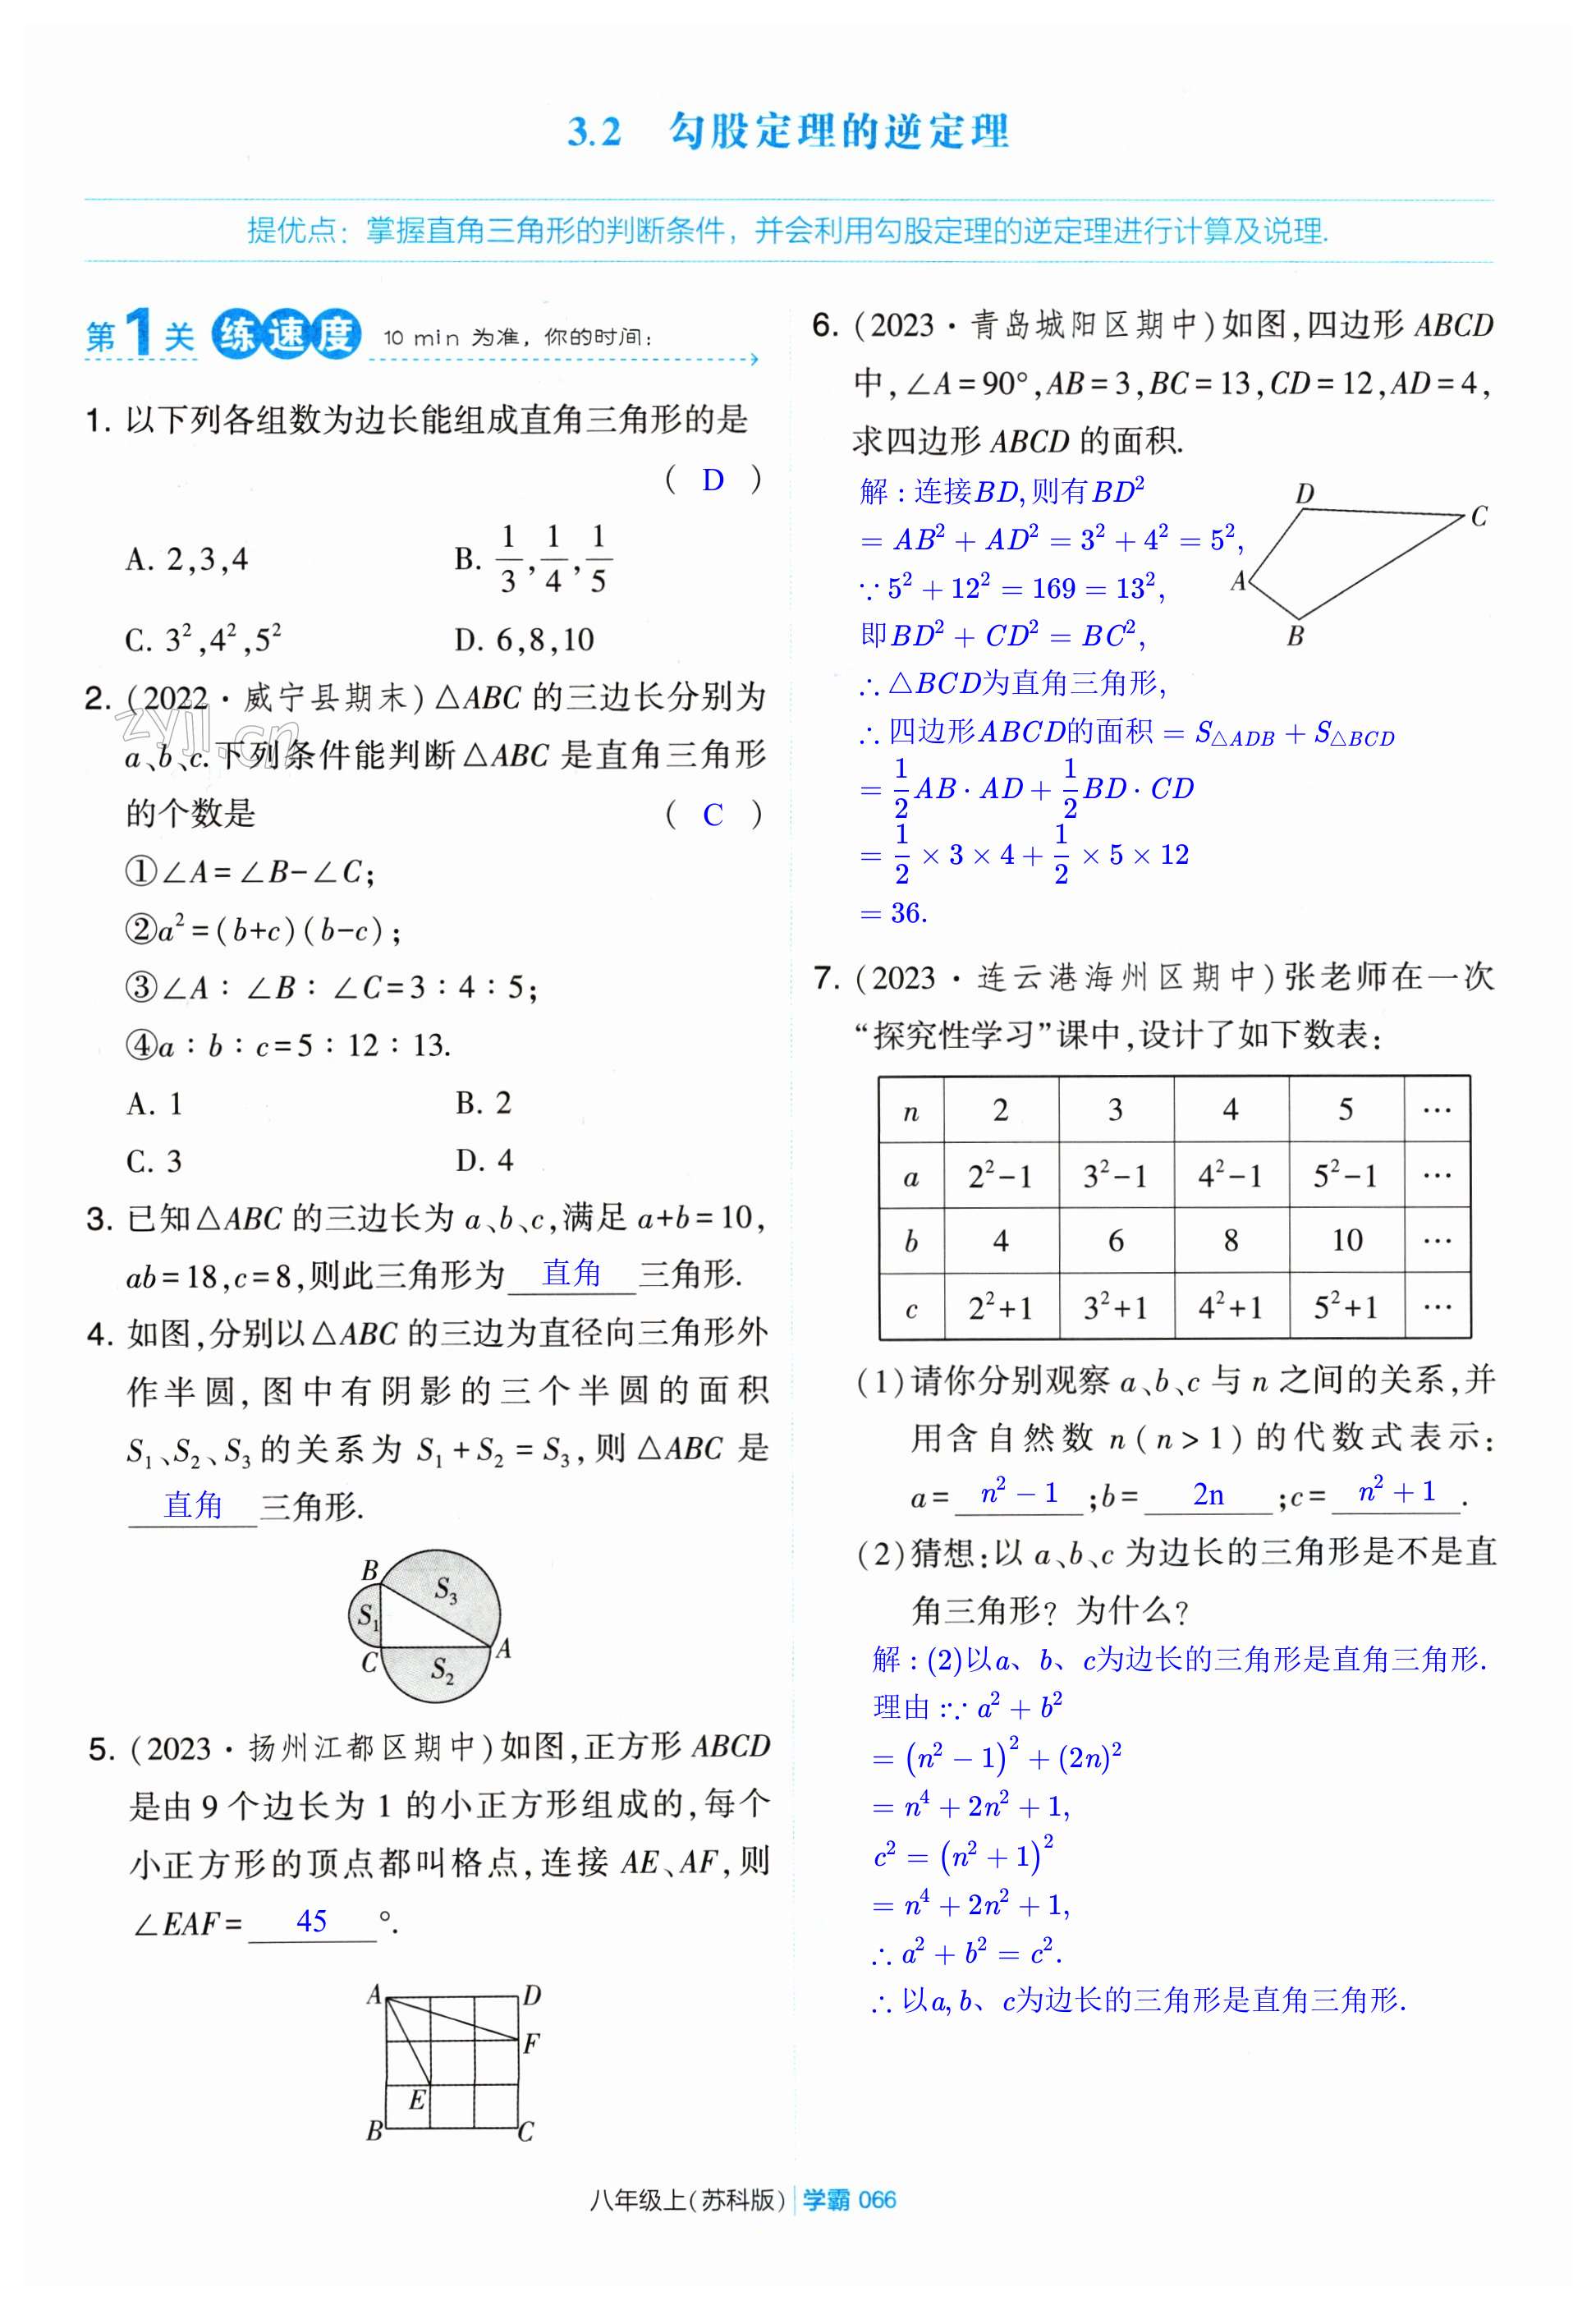 3.2 勾股定理的逆定理
提优点：掌握直角三角形的判断条件，并会利用勾股定理的逆定理进行计算及说理.
第1关 练速度 10 min 为准，你的时间：
1. 以下列各组数为边长能组成直角三角形的是
( D )
A. 2,3,4 B. 1/3,1/4,1/5
C. 3²,4²,5² D. 6,8,10
2. (2022·威宁县期末)△ABC 的三边长分别为
a、b、c.下列条件能判断△ABC 是直角三角形
的个数是 ( C )
①∠A=∠B-∠C；
②a²=(b+c)(b-c)；
③∠A∶∠B∶∠C=3∶4∶5；
④a∶b∶c=5∶12∶13.
A. 1 B. 2
C. 3 D. 4
3. 已知△ABC 的三边长为 a、b、c,满足 a+b=10,
ab=18,c=8,则此三角形为 直角 三角形.
4. 如图,分别以△ABC 的三边为直径向三角形外
作半圆,图中有阴影的三个半圆的面积
S₁、S₂、S₃的关系为 S₁+S₂=S₃,则△ABC 是
直角 三角形.
B
S₃
S₁
A
C
S₂
5. (2023·扬州江都区期中)如图,正方形 ABCD
是由 9 个边长为 1 的小正方形组成的,每个
小正方形的顶点都叫格点,连接 AE、AF,则
∠EAF= 45 °.
A D
F
E
B C
6. (2023·青岛城阳区期中)如图,四边形 ABCD
中,∠A=90°,AB=3,BC=13,CD=12,AD=4,
求四边形 ABCD 的面积.
解：连接BD,则有BD²
=AB²+AD²=3²+4²=5²,
∵5²+12²=169=13²,
即BD²+CD²=BC²,
∴△BCD为直角三角形,
∴四边形ABCD的面积=S△ADB+S△BCD
=1/2AB·AD+1/2BD·CD
=1/2×3×4+1/2×5×12
=36.
D
C
A
B
7. (2023·连云港海州区期中)张老师在一次
“探究性学习”课中,设计了如下数表：
n 2 3 4 5 …
a 2²-1 3²-1 4²-1 5²-1 …
b 4 6 8 10 …
c 2²+1 3²+1 4²+1 5²+1 …
(1)请你分别观察 a、b、c 与 n 之间的关系,并
用含自然数 n(n>1)的代数式表示：
a= n²-1 ;b= 2n ;c= n²+1 .
(2)猜想：以 a、b、c 为边长的三角形是不是直
角三角形？为什么？
解：(2)以a、b、c为边长的三角形是直角三角形.
理由：∵a²+b²
=(n²-1)²+(2n)²
=n⁴+2n²+1,
c²=(n²+1)²
=n⁴+2n²+1,
∴a²+b²=c².
∴以a,b、c为边长的三角形是直角三角形.
zyjl.cn
八年级上(苏科版) 学霸 066